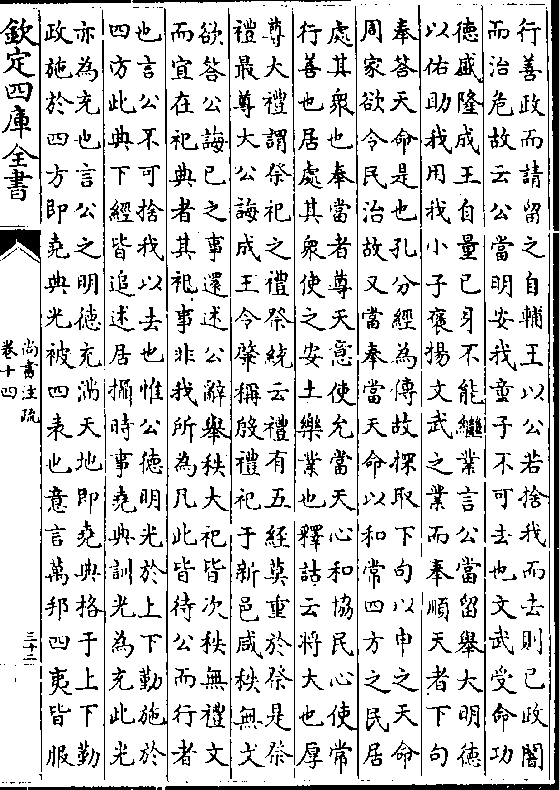 行善政而請留之自輔王以公若捨我而去則已政闇
而治危故云公當明安我童子不可去也文武受命功
德盛隆成王自量已身不能繼業言公當留舉大明德
以佑助我用我小子褒揚文武之業而奉順天者下句
奉答天命是也孔分經為傳故探取下句以申之天命
周家欲令民治故又當奉當天命以和常四方之民居
處其衆也奉當者尊天意使允當天心和協民心使常
行善也居處其衆使之安土樂業也釋詁云將大也厚
尊大禮謂祭祀之禮祭統云禮有五經莫重於祭是祭
禮最尊大公誨成王令肇稱殷禮祀于新邑咸秩無文
欲答公誨已之事還述公辭舉秩大祀皆次秩無禮文
而宜在祀典者其祀事非我所為凡此皆待公而行者
也言公不可捨我以去也惟公德明光於上下勤施於
四方此典下經皆追述居攝時事堯典訓光為充此光
亦為充也言公之明德充滿天地即堯典格于上下勤
政施於四方即堯典光被四表也意言萬邦四夷皆服
欽定四庫全書
尚書注疏
卷十四
三十二